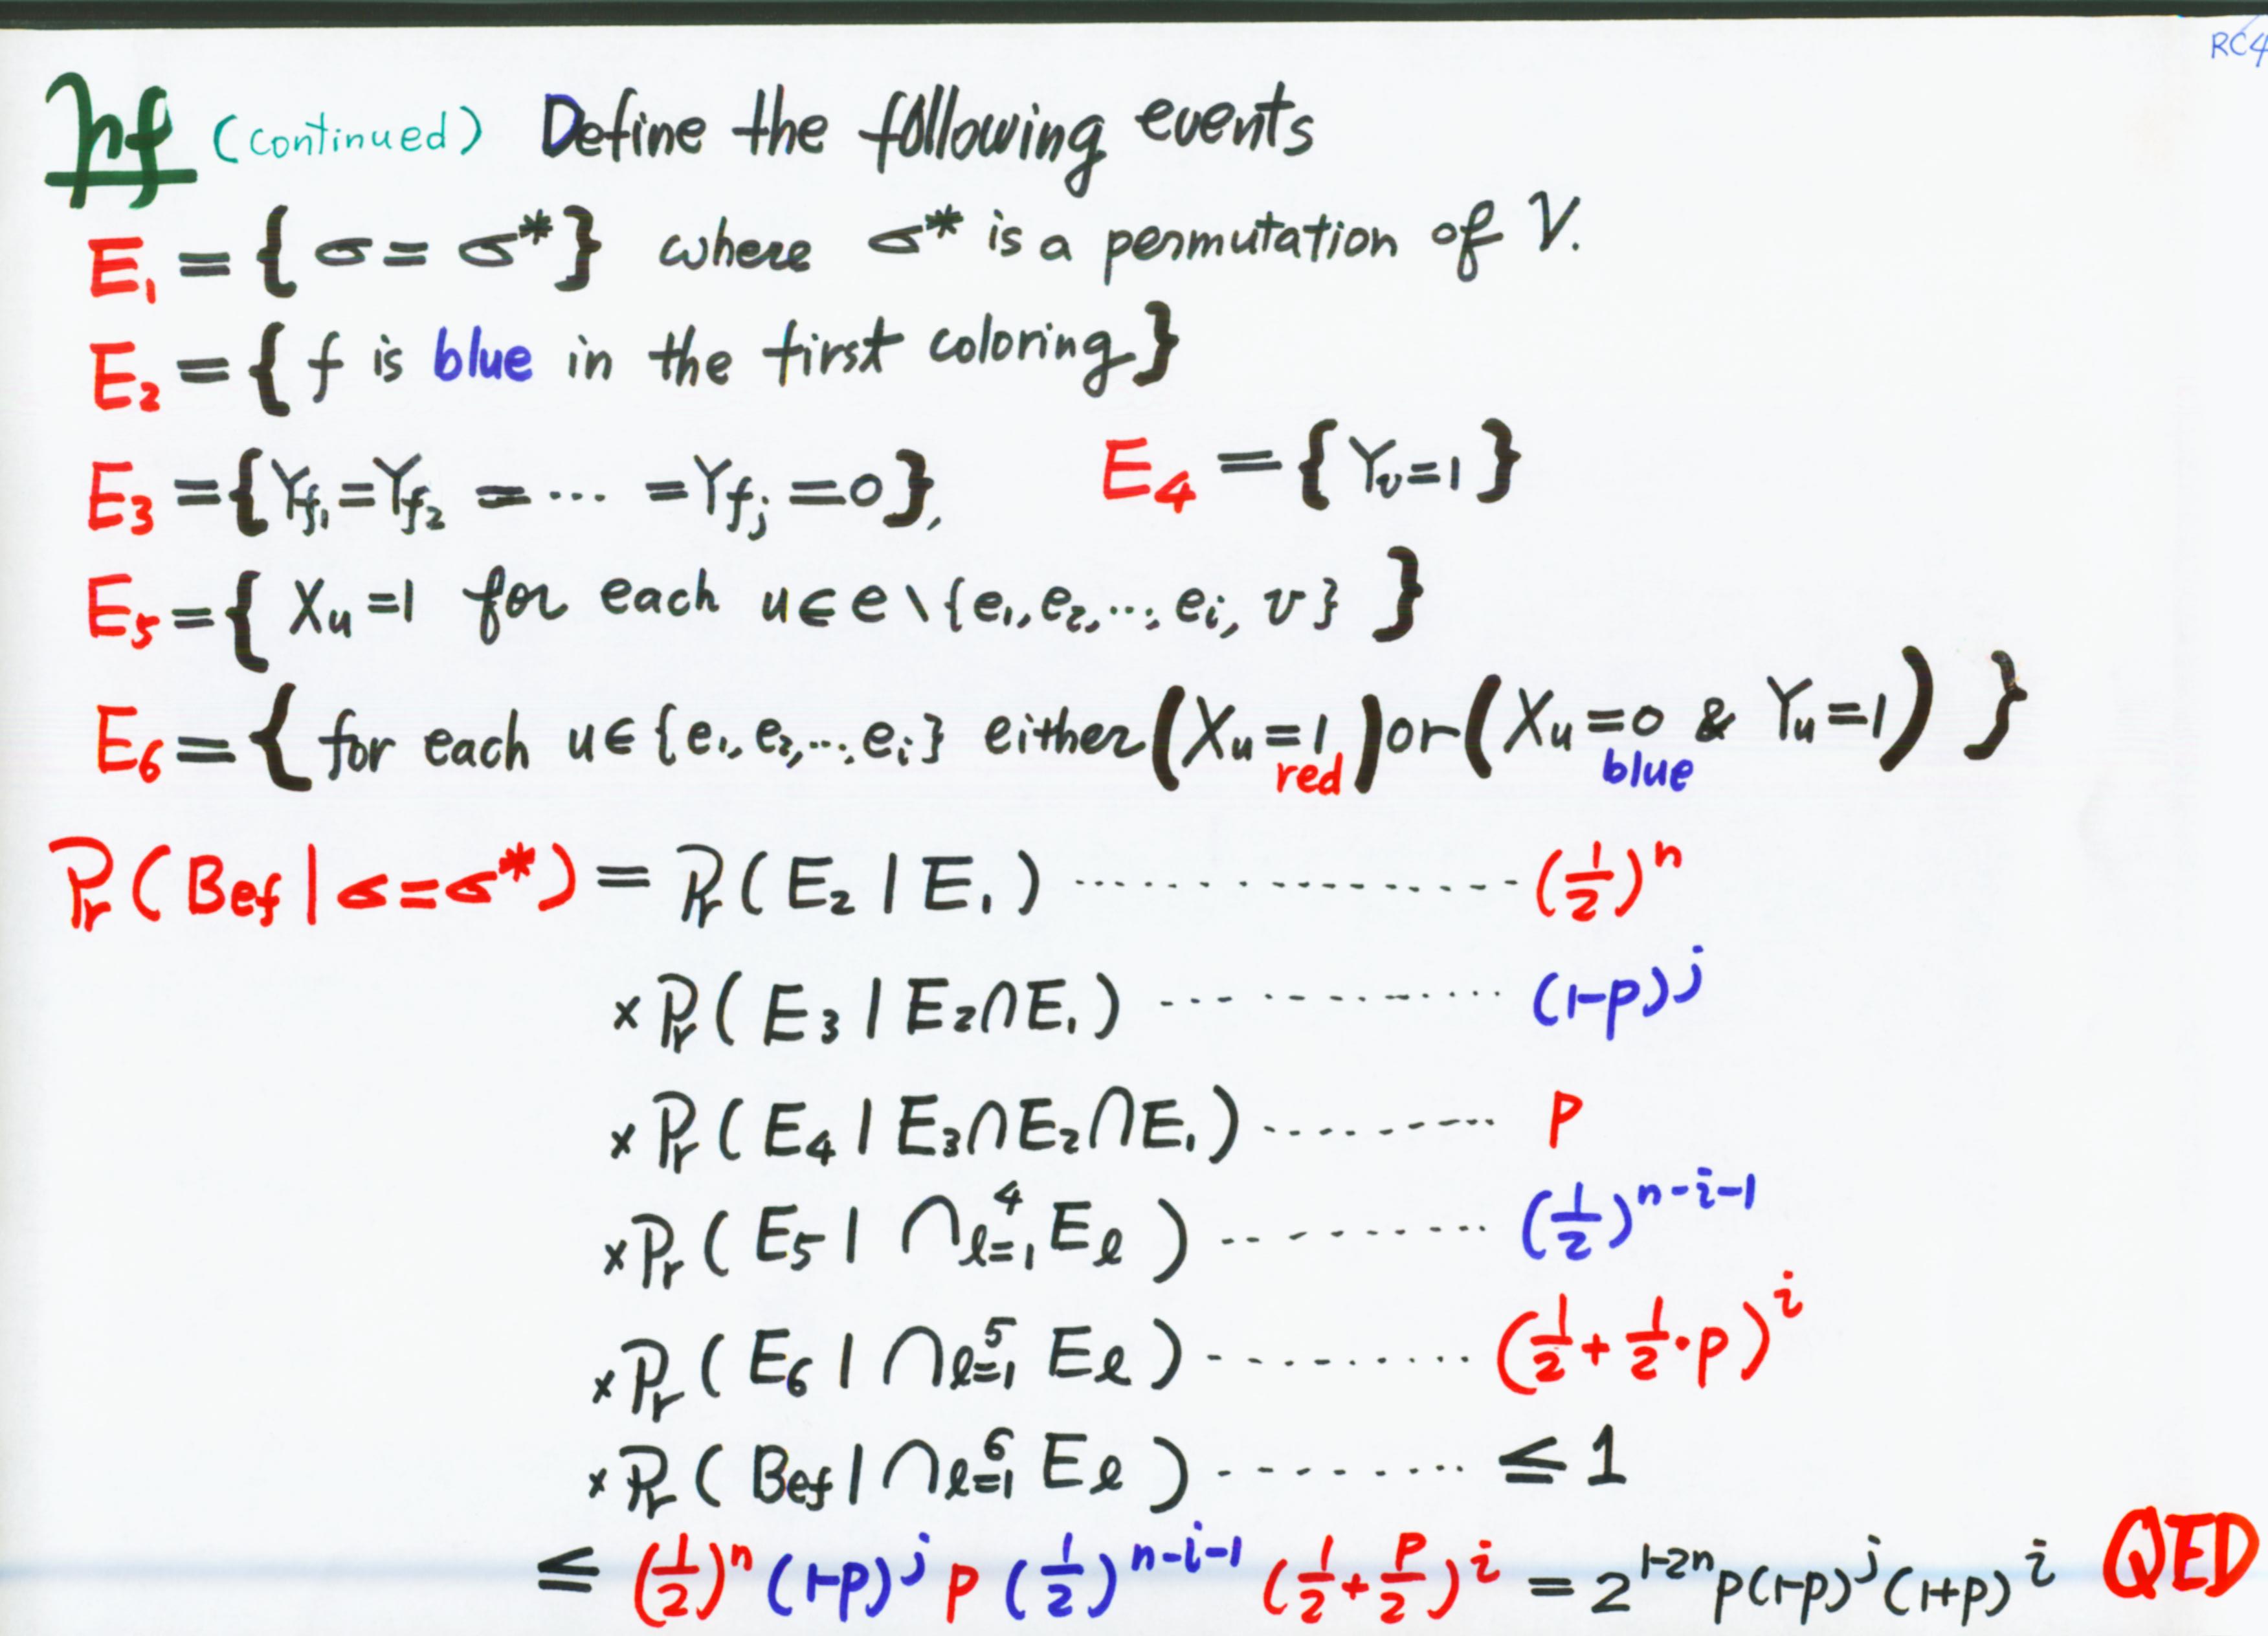 RC4
pf (continued) Define the following events
E₁ = { σ = σ* } where σ* is a permutation of V.
E₂ = { f is blue in the first coloring }
E₃ = { Y_{f₁} = Y_{f₂} = ··· = Y_{f_j} = 0 }, E₄ = { Y_v = 1 }
E₅ = { X_u = 1 for each u ∈ e \ {e₁, e₂, ..., e_i, v} }
E₆ = { for each u ∈ {e₁, e₂, ..., e_i} either (X_u = 1) or (X_u = 0 & Y_u = 1) }
red blue
Pr( Bef | σ = σ* ) = Pr( E₂ | E₁ ) ················ (1/2)^n
× Pr( E₃ | E₂ ∩ E₁ ) ············ (1-p)^j
× Pr( E₄ | E₃ ∩ E₂ ∩ E₁ ) ········· p
× Pr( E₅ | ∩_{ℓ=1}^4 E_ℓ ) ········· (1/2)^{n-i-1}
× Pr( E₆ | ∩_{ℓ=1}^5 E_ℓ ) ········· (1/2 + 1/2 · p)^i
× Pr( Bef | ∩_{ℓ=1}^6 E_ℓ ) ········· ≤ 1
≤ (1/2)^n (1-p)^j p (1/2)^{n-i-1} (1/2 + p/2)^i = 2^{1-2n} p(1-p)^j (1+p)^i QED